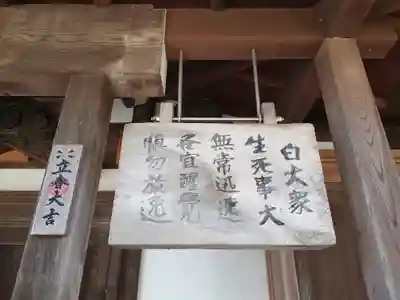 白大衆
生死事大
無常迅速
各宜醒覚
慎勿放逸
立春大吉